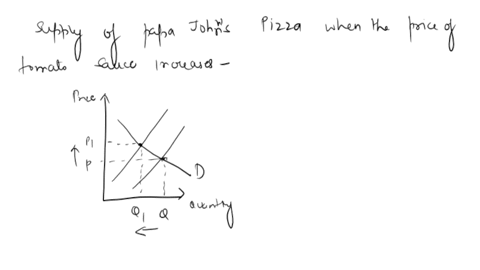 Supply of papa John's Pizza when the price of
tomato sauce increases -
Price
P1
P
D
Q1 Q Quantity